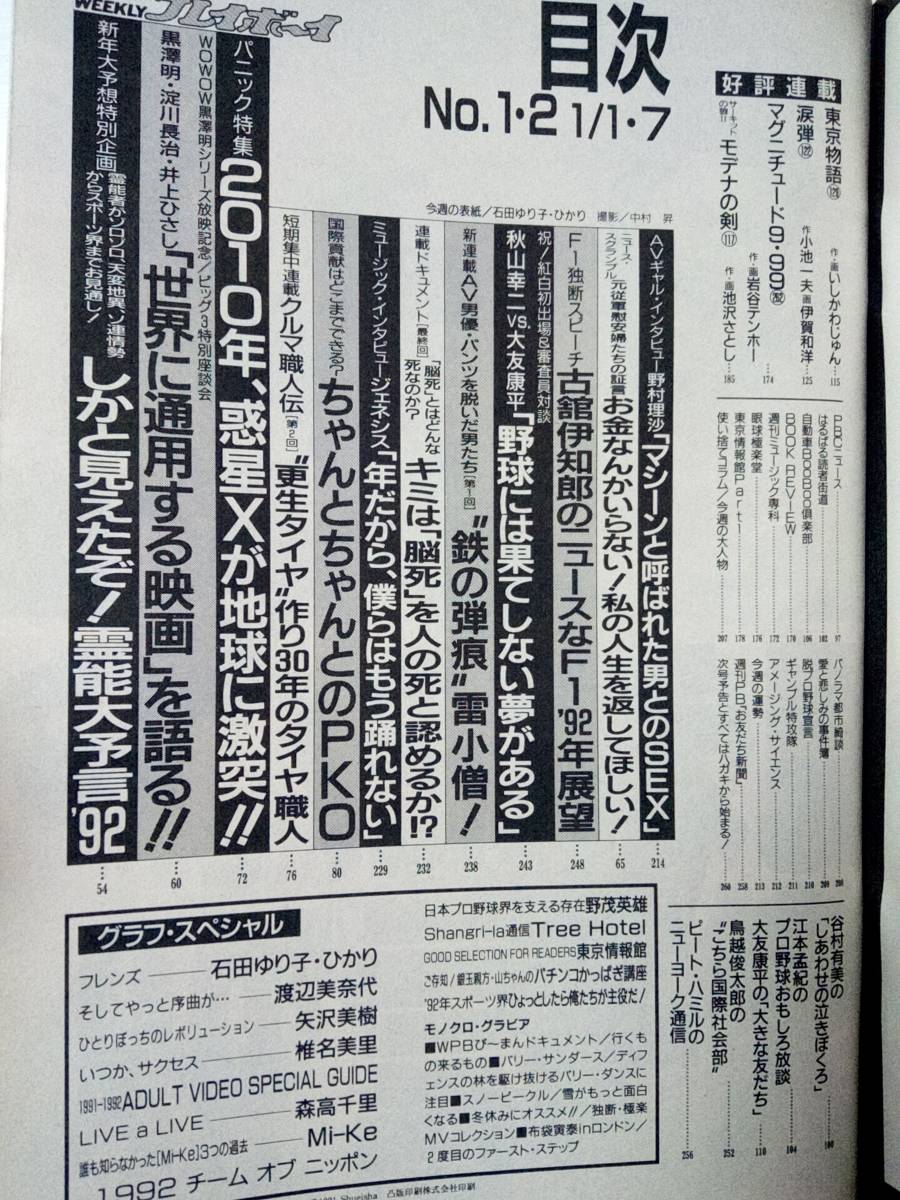 WEEKLY プレイボーイ
目次
No.1・2 1/1・7
今週の表紙／石田ゆり子・ひかり 撮影／中村 昇
好評連載
東京物語
作・画いしかわじゅん 115
涙弾(122)
作小池一夫 画伊賀和洋 125
マグニチュード9・99
作・画岩谷テンホー 174
サーキットの狼II モデナの剣(117)
作・画池沢さとし 185
PBCニュース 97
はるばる読者街道 102
自動車BooBoo倶楽部 106
BOOK REVIEW 170
週刊ミュージック専科 172
眼球極楽堂 176
東京情報館Part1 178
使い捨てコラム／今週の大人物 207
パノラマ都市綺談 208
愛と悲しみの事件簿 209
脱プロ野球宣言 210
ギャンブル特攻隊 211
アメージング・サイエンス 212
今週の運勢 213
週刊PB「お友だち新聞」 258
次号予告とすべてはハガキから始まる! 260
谷村有美の「しあわせの泣きぼくろ」 100
江本孟紀のプロ野球おもしろ放談 104
大友康平の「大きな友だち」 110
鳥越俊太郎の“こちら国際社会部” 252
ピート・ハミルのニューヨーク通信 256
AVギャル・インタビュー野村理沙「マシーンと呼ばれた男とのSEX」 214
ニュース・スクランブル 元従軍慰安婦たちの証言 お金なんかいらない!私の人生を返してほしい! 65
F1独断スピーチ 古舘伊知郎のニュースなF1'92年展望 248
祝／紅白初出場&審査員対談 秋山幸二vs.大友康平「野球には果てしない夢がある」 243
新連載AV男優・パンツを脱いだ男たち[第1回]“鉄の弾痕”雷小僧! 238
連載ドキュメント[最終回]「脳死」とはどんな死なのか? キミは「脳死」を人の死と認めるか!? 232
ミュージック・インタビュージェネシス「年だから、僕らはもう踊れない」 229
国際貢献はどこまでできる? ちゃんとちゃんとのPKO 80
短期集中連載クルマ職人伝[第2回]“更生タイヤ”作り30年のタイヤ職人 76
パニック特集 2010年、惑星Xが地球に激突!! 72
WOWOW黒澤明シリーズ放映記念／ビッグ3特別座談会
黒澤明・淀川長治・井上ひさし「世界に通用する映画」を語る!! 60
新年大予想特別企画 霊能者がゾロゾロ、天変地異、ソ連情勢からスポーツ界までお見通し! しかと見えたぞ!霊能大予言'92 54
グラフ・スペシャル
フレンズ——石田ゆり子・ひかり
そしてやっと序曲が…——渡辺美奈代
ひとりぼっちのレボリューション——矢沢美樹
いつか、サクセス——椎名美里
1991-1992 ADULT VIDEO SPECIAL GUIDE
LIVE a LIVE——森高千里
誰も知らなかった[Mi-Ke]3つの過去——Mi-Ke
1992 チーム オブ ニッポン
日本プロ野球界を支える存在野茂英雄
Shangri-la通信Tree Hotel
GOOD SELECTION FOR READERS東京情報館
ご存知／銀玉親方・山ちゃんのパチンコかっぱぎ講座
'92年スポーツ界ひょっとしたら俺たちが主役だ!
モノクロ・グラビア
■WPBび〜まんドキュメント／行くも
の来るもの■バリー・サンダース／ディフ
ェンスの林を駆け抜けるバリー・ダンスに
注目■スノービークル／雪がもっと面白
くなる■冬休みにオススメ!!／独断・極楽
MVコレクション■布袋寅泰inロンドン／
2度目のファースト・ステップ
Shueisha 凸版印刷株式会社印刷